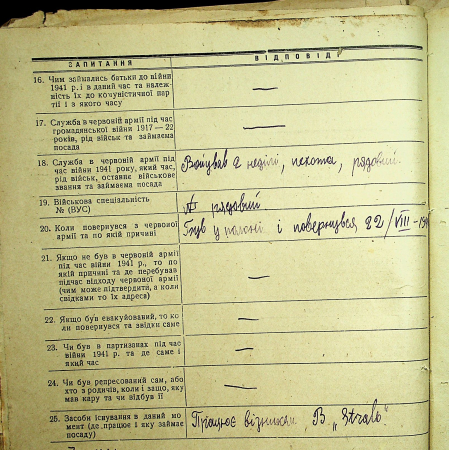 ЗАПИТАННЯ
ВІДПОВІДІ
16. Чим займались батьки до війни
1941 р. і в даний час та належ-
ність їх до комуністичної пар-
тії і з якого часу
—
17. Служба в червоній армії під час
громадянської війни 1917—22
років, рід військ та займаєма
посада
—
18. Служба в червоній армії під
час війни 1941 року, який час,
рід військ, останнє військове
звання та займаєма посада
Воював 2 неділі, пєхота, рядовий.
19. Військова спеціальність
№ (ВУС)
рядовий
20. Коли повернувся з червоної
армії та по якій причині
Був у полоні і повернувся 22/VIII-194
21. Якщо не був в червоній армії
під час війни 1941 р., то по
якій причині та де перебував
підчас відходу червоної армії
(чим може підтвердити, а коли
свідками то їх адреса)
—
22. Якщо був евакуйований, то ко-
ли повернувся та звідки саме
—
23. Чи був в партизанах під час
війни 1941 р. та де саме і
який час
—
24. Чи був репресований сам, або
хто з родичів, коли і защо, яку
мав кару та чи відбув її
—
25. Засоби існування в даний мо-
мент (де працює і яку займає
посаду)
Працює візником, В „Strabo"